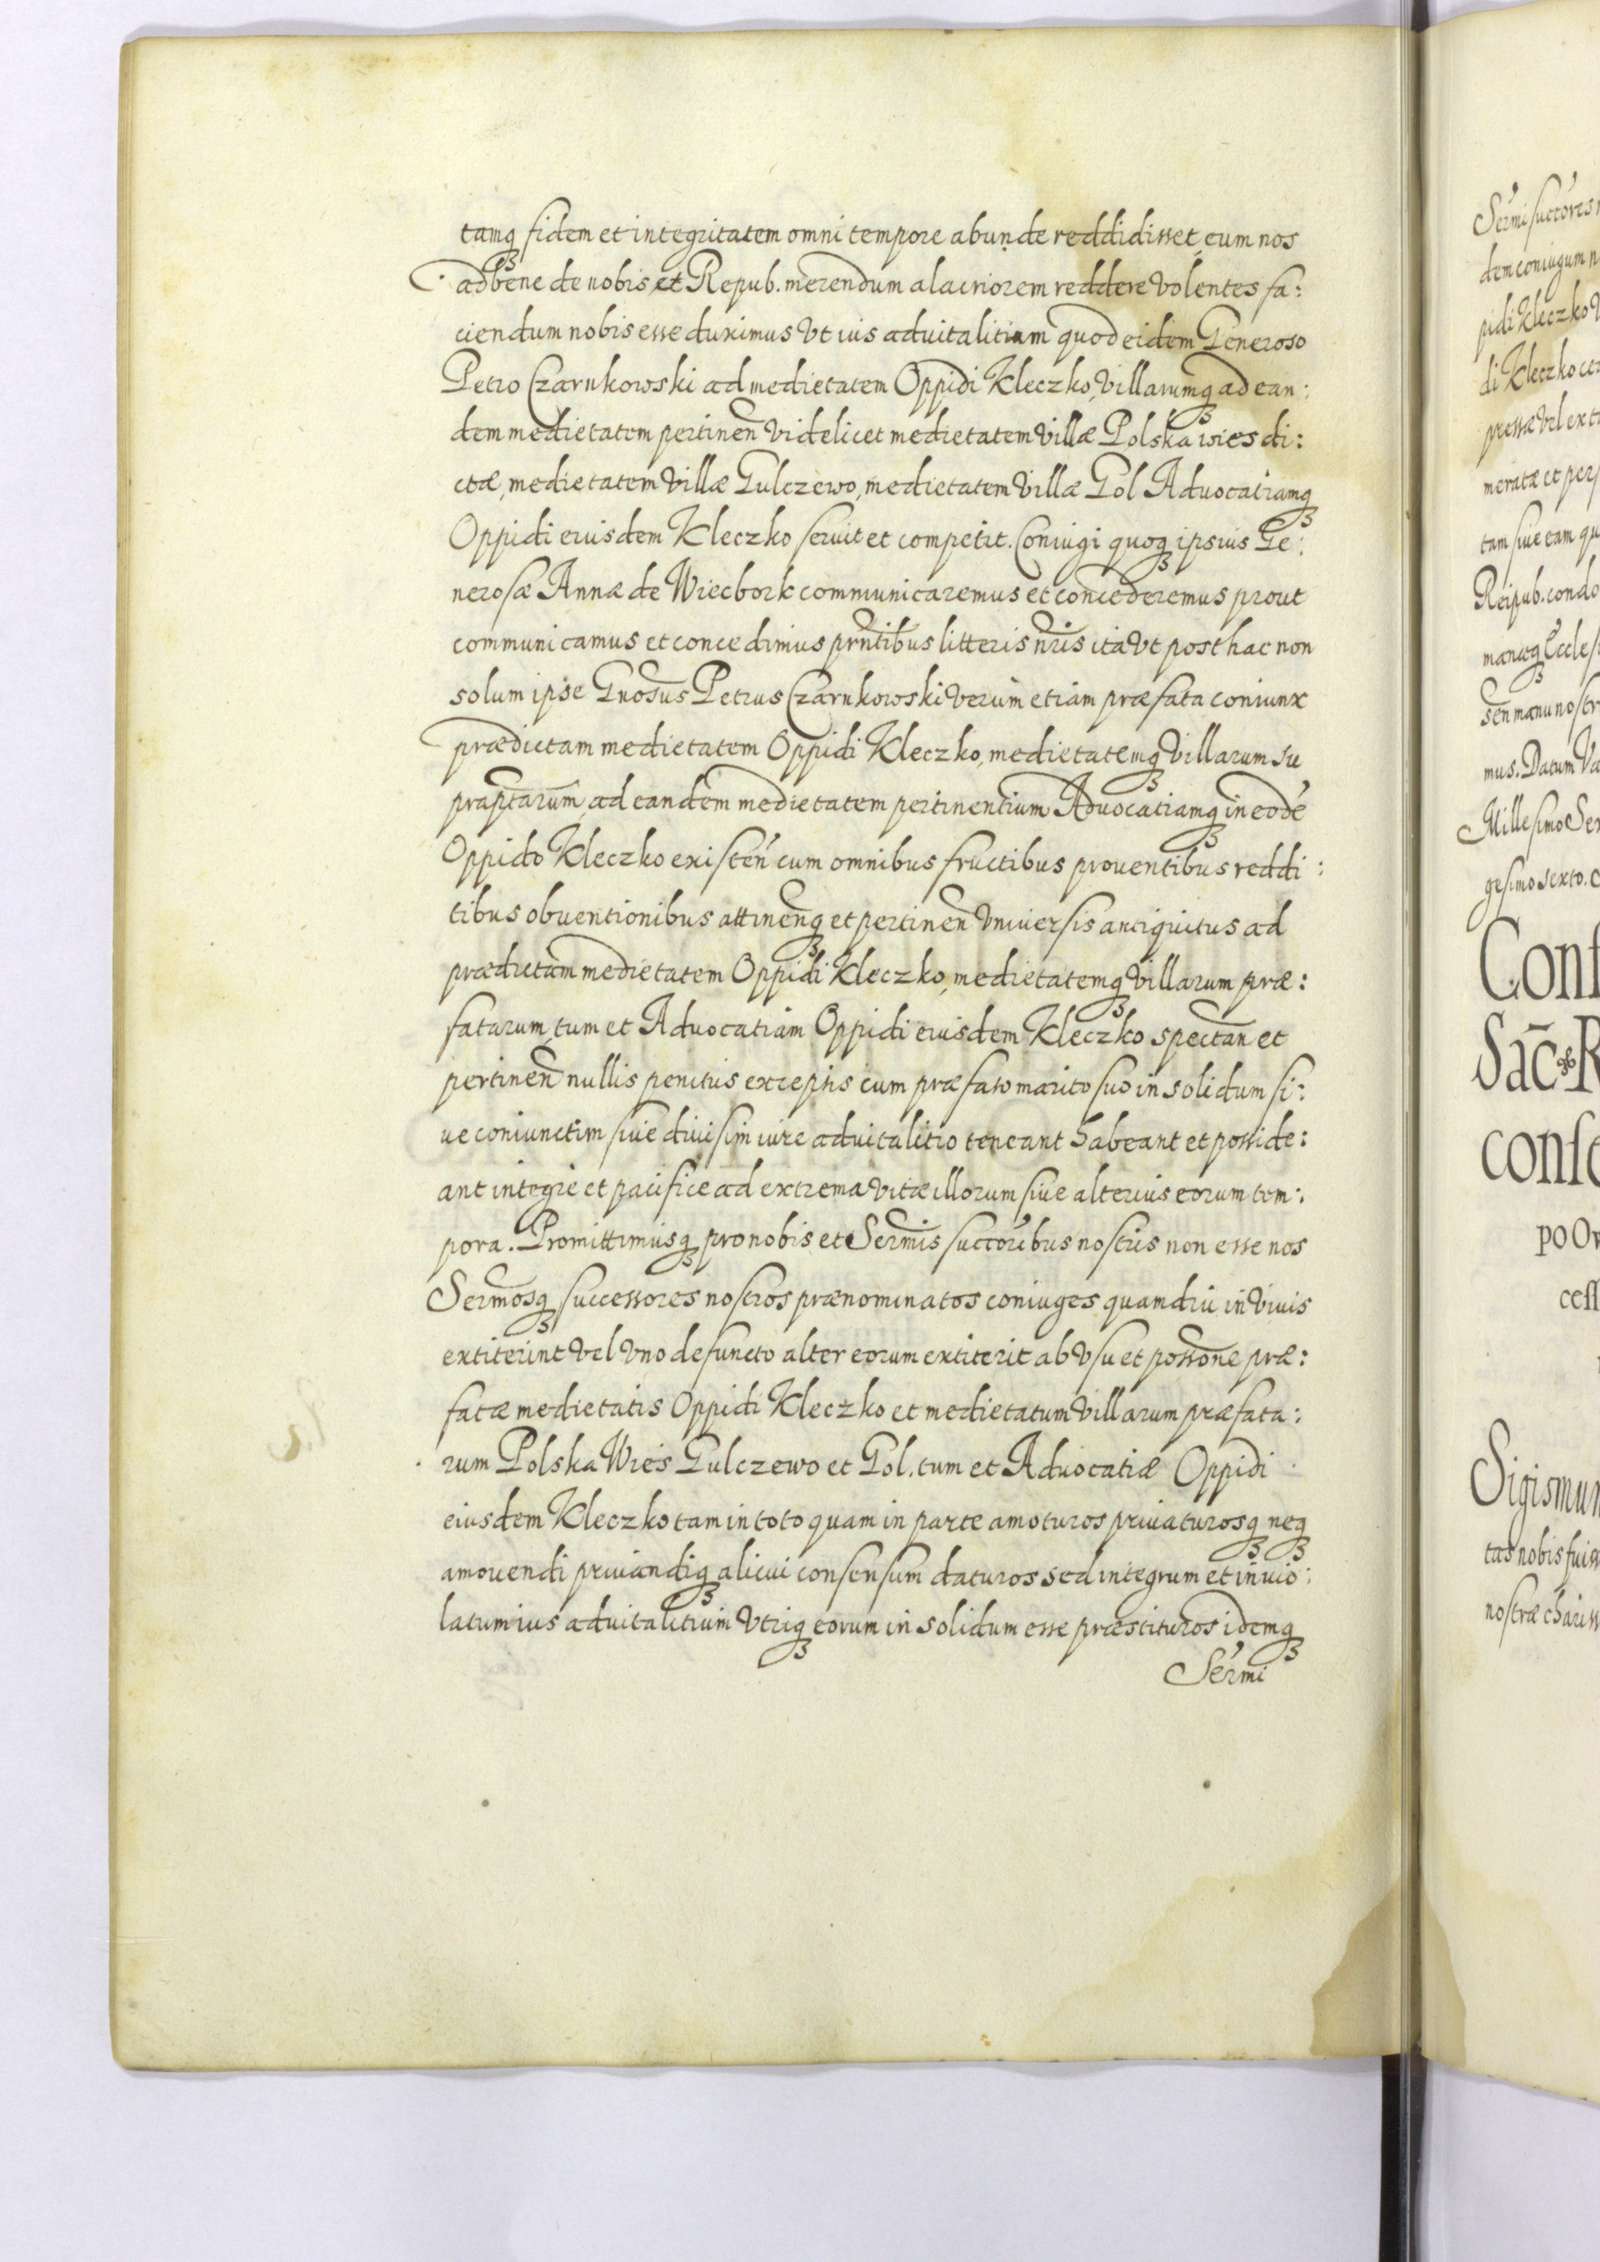 tamq₃ fidem et integritatem omni tempore abunde reddidisset, eum nos
ad bene de nobis et Repub. merendum alacriorem reddere volentes fa:
ciendum nobis esse duximus vt ius aduitalitium quod eidem Generoso
Petro Czarnkowski ad medietatem Oppidi Kleczko, villarumq₃ ad ean:
dem medietatem pertinen̄ videlicet medietatem villæ Polska wies di:
ctæ, medietatem villæ Gulczewo, medietatem villæ Gol Aduocatiamq₃
Oppidi eiusdem Kleczko seruit et competit. Coniugi quoq₃ ipsius Ge:
nerosæ Annæ de Wiecbork communicaremus et concederemus prout
communicamus et concedimus prn̄tibus litteris nr̄is ita vt posthac non
solum ipse Gnosus Petrus Czarnkowski verum etiam præfata coniunx
prædictam medietatem Oppidi Kleczko, medietatemq₃ villarum su
praptarum, ad eandem medietatem pertinentium Aduocatiamq₃ in eodē
Oppido Kleczko existen̄ cum omnibus fructibus prouentibus reddi:
tibus obuentionibus attinenq₃ et pertinen̄ vniuersis antiquitus ad
prædictam medietatem Oppidi Kleczko, medietatemq₃ villarum præ:
fatarum, tum et Aduocatiam Oppidi eiusdem Kleczko spectan̄ et
pertinen̄ nullis penitus exceptis cum præfato marito suo in solidum si:
ue coniunctim siue diuisim iure aduitalitio teneant habeant et posside:
ant integre et pacifice ad extrema vitæ illorum siue alterius eorum tem:
pora. Promittimusq₃ pro nobis et Serm̄is succoribus nostris non esse nos
Sermosq₃ successores nostros prænominatos coniuges quamdiu in viuis
extiterint vel vno defuncto alter eorum extiterit ab vsu et possōne præ:
fatæ medietatis Oppidi Kleczko et medietatum villarum præfata:
rum Polska Wies Gulczewo et Gol. tum et Aduocatiæ Oppidi
eiusdem Kleczko tam in toto quam in parte amoturos priuaturosq₃ neq₃
amouendi priuandiq₃ alicui consensum daturos sed integrum et inuio:
latum ius aduitalitium vtriq₃ eorum in solidum esse præstituros idemq₃
Sermi
Sermi succores
dem coniugum
pidi Kleczko
di Kleczko
pressæ vel ex
meratæ et per
tam siue eam qu
Reipub. cond
manæq₃ Eccles
sen̄ manu nostr
mus. Datum Va
Millesimo Se
gesimo sexto.
Conſ
Sac̄ R
conſe
po Ov
ceſſ
Sigismun
tas nobis fuis
nostræ chariss